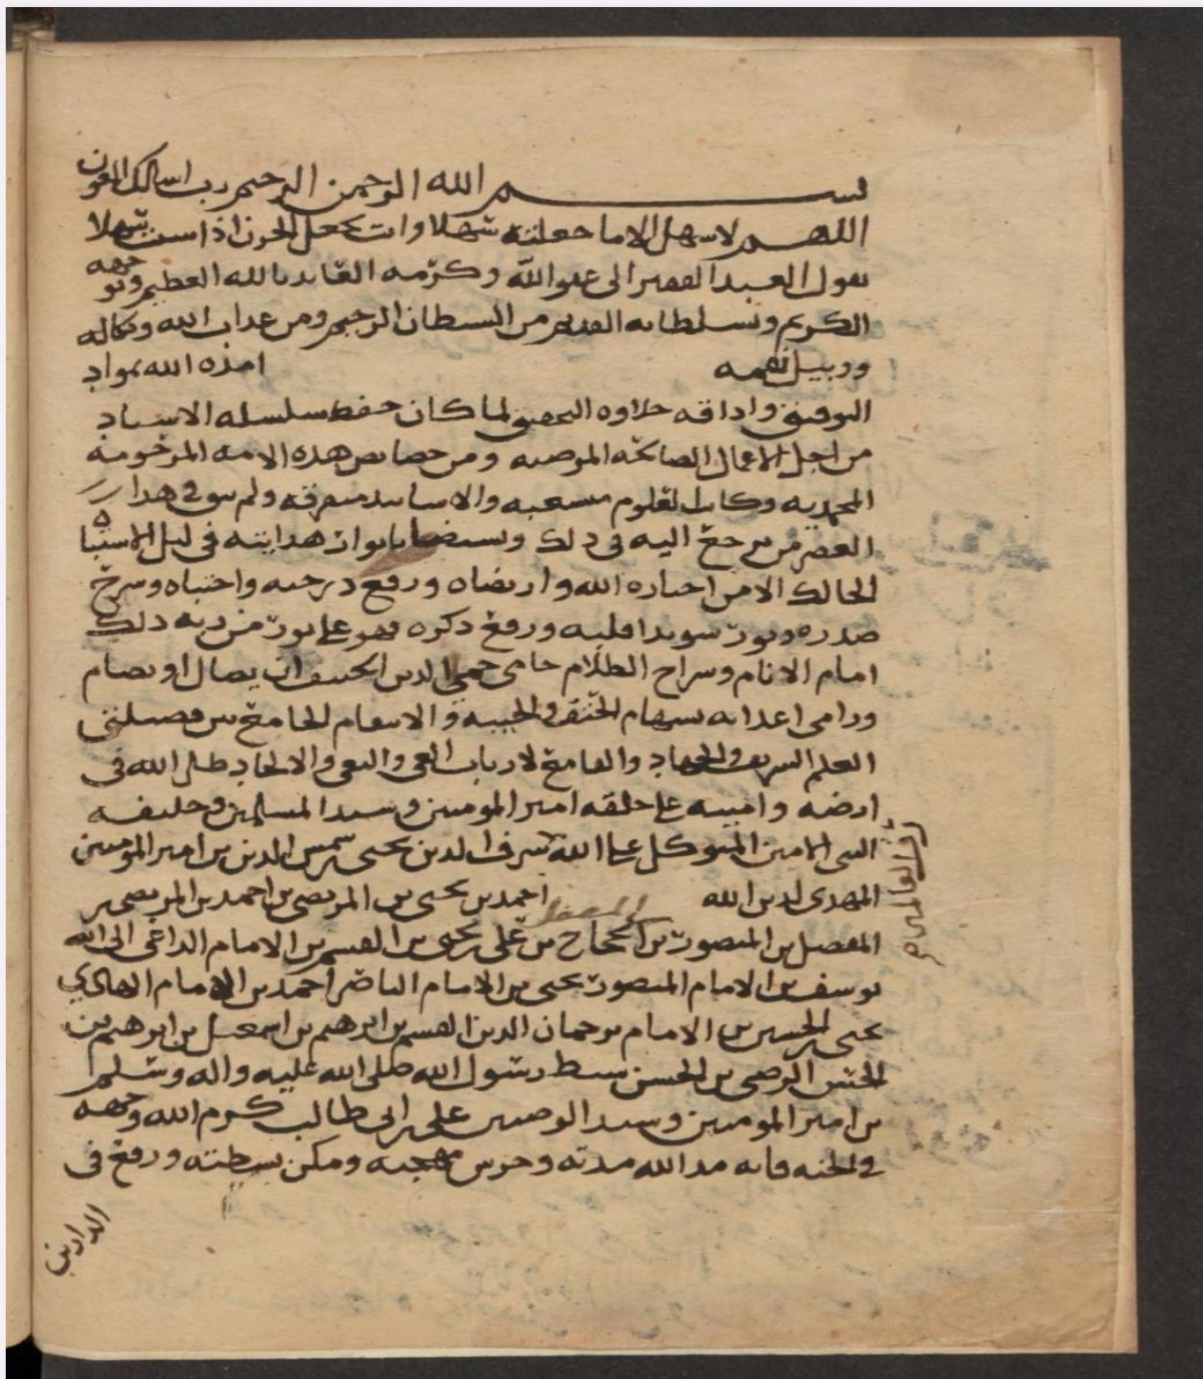 بسم الله الرحمن الرحيم رب اسالك العون
اللهم لا سهل الا ما جعلته سهلا وانت تجعل الحزن اذا شئت سهلا
يقول العبد الفقير الى عفو الله وكرمه العايذ بالله العظيم وبوجهه
الكريم وبسلطانه القديم من الشيطان الرجيم ومن عذاب الله ونكاله
ووبيل نقمه امده الله بمواد
التوفيق واذاقه حلاوه التحقيق لما كان حفظ سلسله الاسناد
من اجل الاعمال الصالحه المرضيه ومن خصايص هذه الامه المرحومه
المحمديه وكانت العلوم متشعبه والاسانيد متفرقه ولم يبق في هذا
العصر من يرجع اليه في ذلك ويستضا بانوار هدايته في ليل الاشتباه
الحالك الا من اختاره الله وارتضاه ورفع درجته واجتباه وشرح
صدره ونور سويدا قلبه ورفع ذكره فهو على نور من ربه ذلك
امام الانام وسراج الظلام حامى حمى الدين الحنيف ان يضال او يضام
ورامى اعدائه بسهام الحتف والخيبه والانتقام الجامع بين فضيلتى
العلم الشريف والجهاد والقامع لارباب الغى والبغى والالحاد ظل الله فى
ارضه وامينه على خلقه امير المومنين وسيد المسلمين وخليفه
النبى الامين المتوكل على الله شرف الدين يحيى بن شمس الدين بن امير المومنين
المهدى لدين الله احمد بن يحيى بن المرتضى بن احمد بن المرتضى بن
المفضل بن المنصور بن المفضل الحجاج بن على بن يحيى بن القسم بن الامام الداعى الى الله
يوسف بن الامام المنصور يحيى بن الامام الناصر احمد بن الامام الهادي
يحيى بن الحسين بن الامام ترجمان الدين القسم بن ابرهيم بن اسمعيل بن ابرهيم بن
الحسن الرضى بن الحسن سبط رسول الله صلى الله عليه واله وسلم
بن امير المومنين وسيد الوصيين على بن ابى طالب كرم الله وجهه
في الجنه فانه مد الله مدته وحرس مهجته ومكن بسطته ورفع فى
الدارين